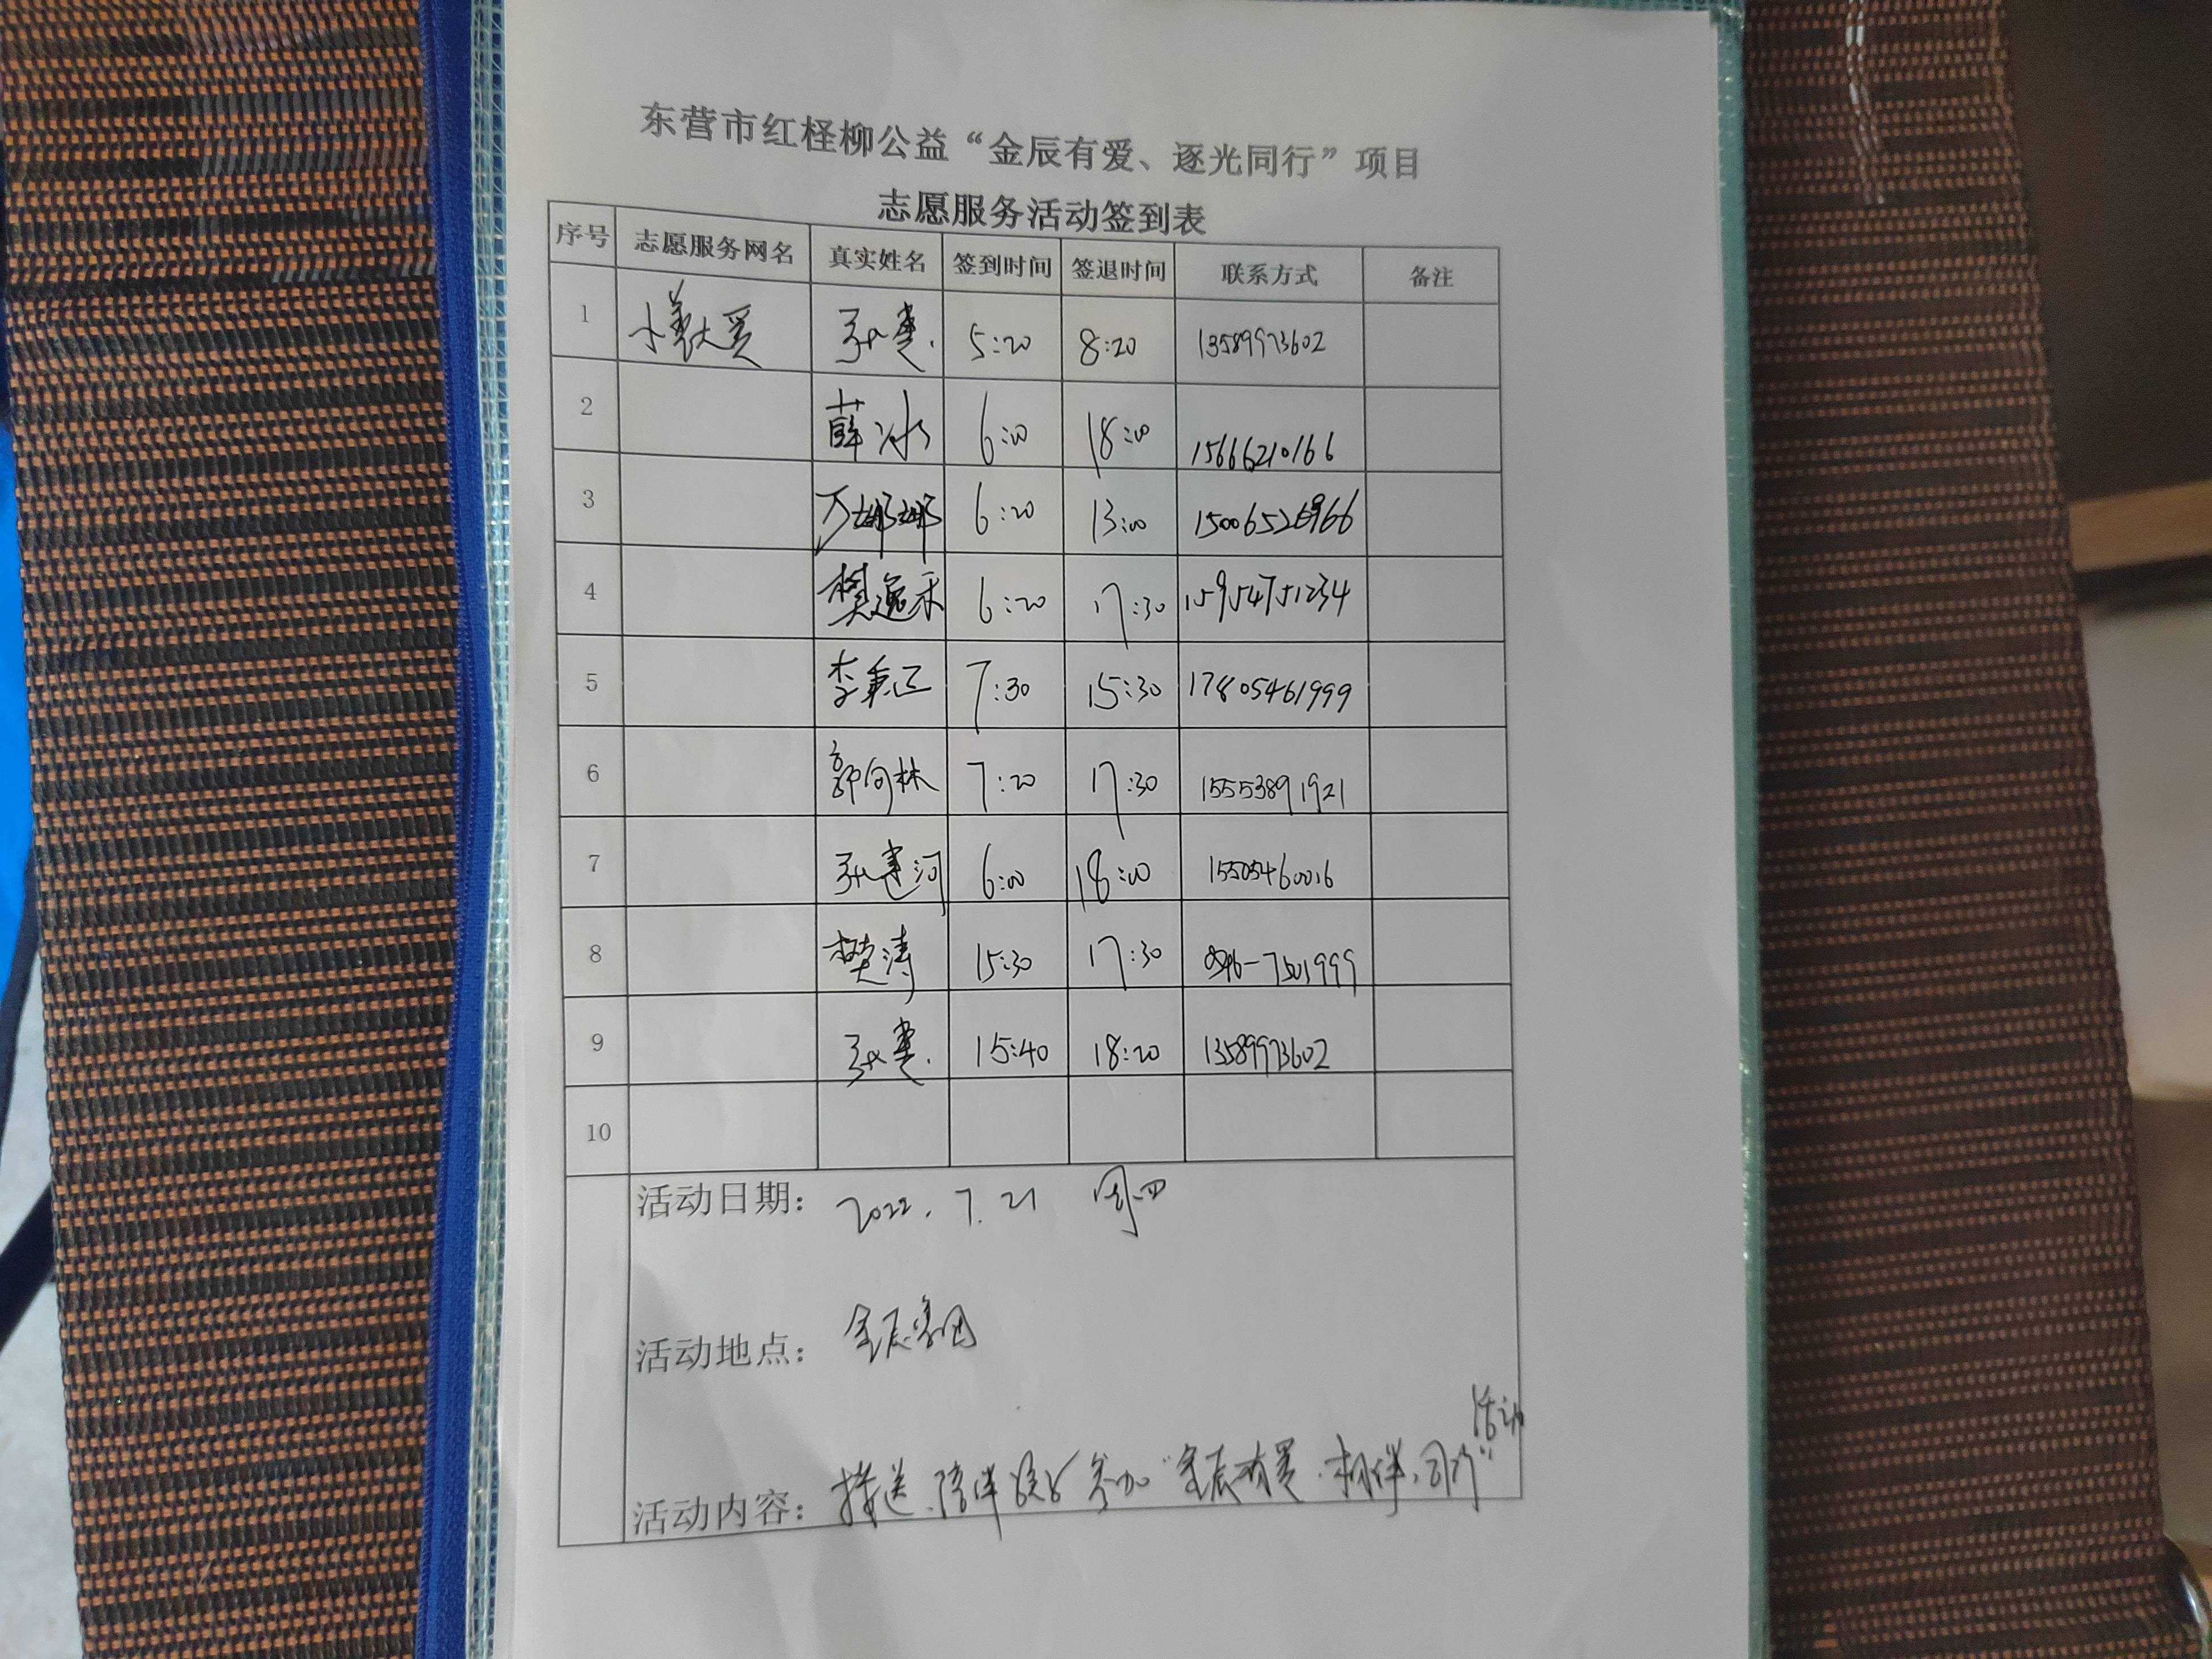 东营市红柽柳公益“金辰有爱、逐光同行”项目
志愿服务活动签到表
序号 志愿服务网名 真实姓名 签到时间 签退时间 联系方式 备注
1 小善大爱 张建 5:20 8:20 13589973602
2 薛冰 6:00 18:00 15666210166
3 万娜娜 6:20 13:00 15006526966
4 樊逸禾 6:20 17:30 15954751234
5 李秉正 7:30 15:30 17805461999
6 郭向林 7:20 17:30 15553891921
7 张建河 6:00 18:00 15505460016
8 樊涛 15:30 17:30 0546-7501999
9 张建 15:40 18:20 13589973602
10
活动日期: 2022.7.21 周四
活动地点: 金辰集团
活动内容: 接送、陪伴孩子参加“金辰有爱、相伴同行”活动